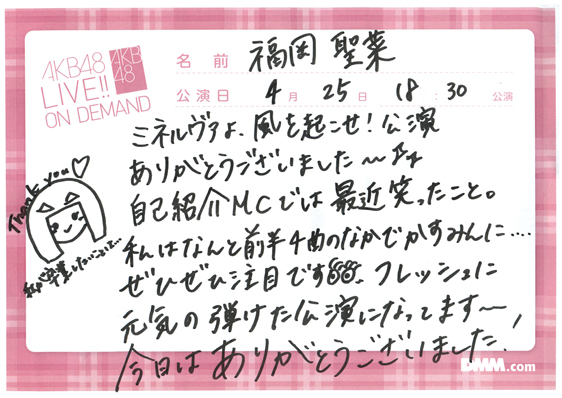 AKB48
LIVE!!
ON DEMAND
AKB
48
名前 福岡 聖菜
公演日 4月 25日 18:30 公演
ミネルヴァよ、風を起こせ!公演
ありがとうございました〜
自己紹介MCでは最近笑ったこと。
私はなんと前半4曲のなかでかすみんに....
ぜひぜひ注目です 、フレッシュに
元気の弾けた公演になってます〜
今日はありがとうございました!
Thank you♡
私が卒業したい
DMM.com